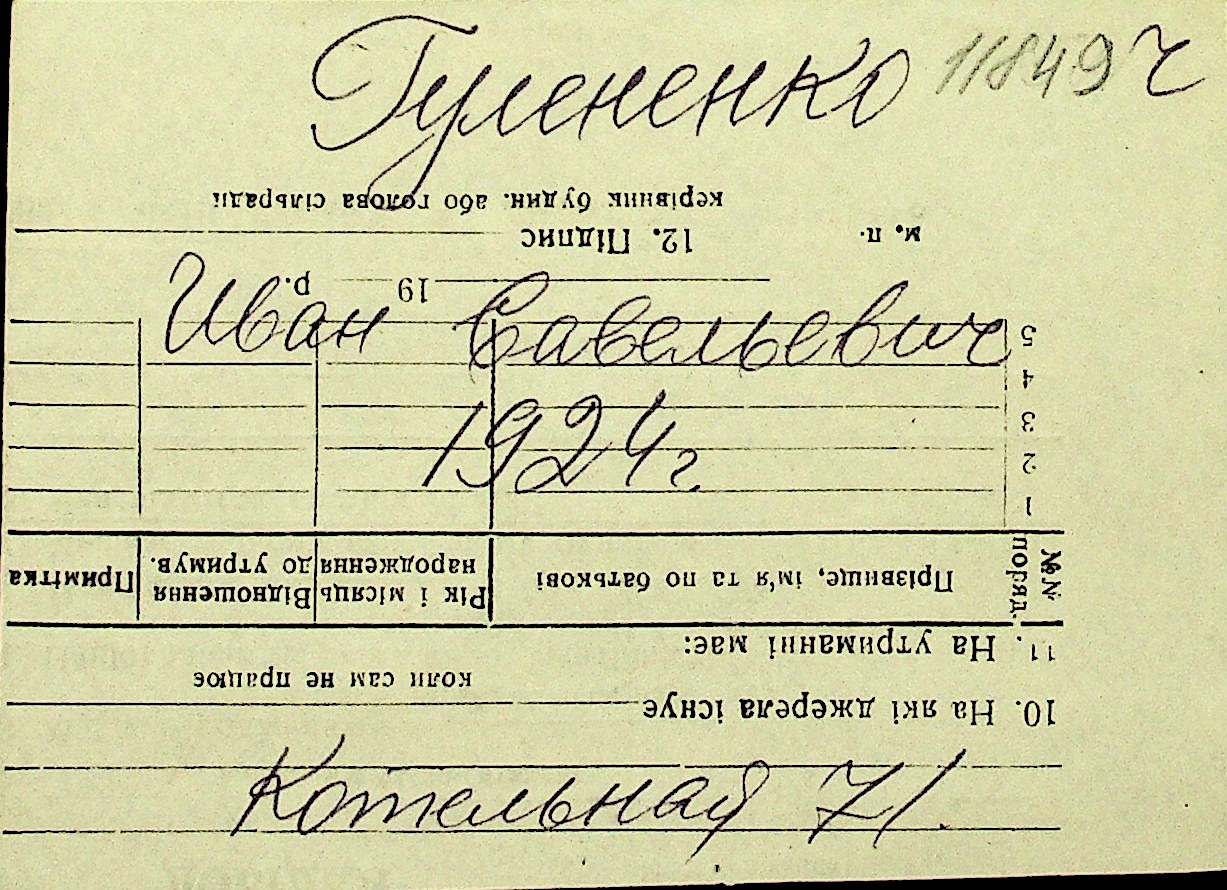 Гулененко 11849 ч
Иван Савельевич
1924г.
Котельная 71.
10. На які джерела існує
коли сам не працює
11. На утриманні має:
№№ поряд. Прізвище, ім'я та по батькові Рік і місяць народження Відношення до утримув. Примітка
1
2
3
4
5
19 р.
м. п. 12. Підпис
керівник будин. або голова сільради